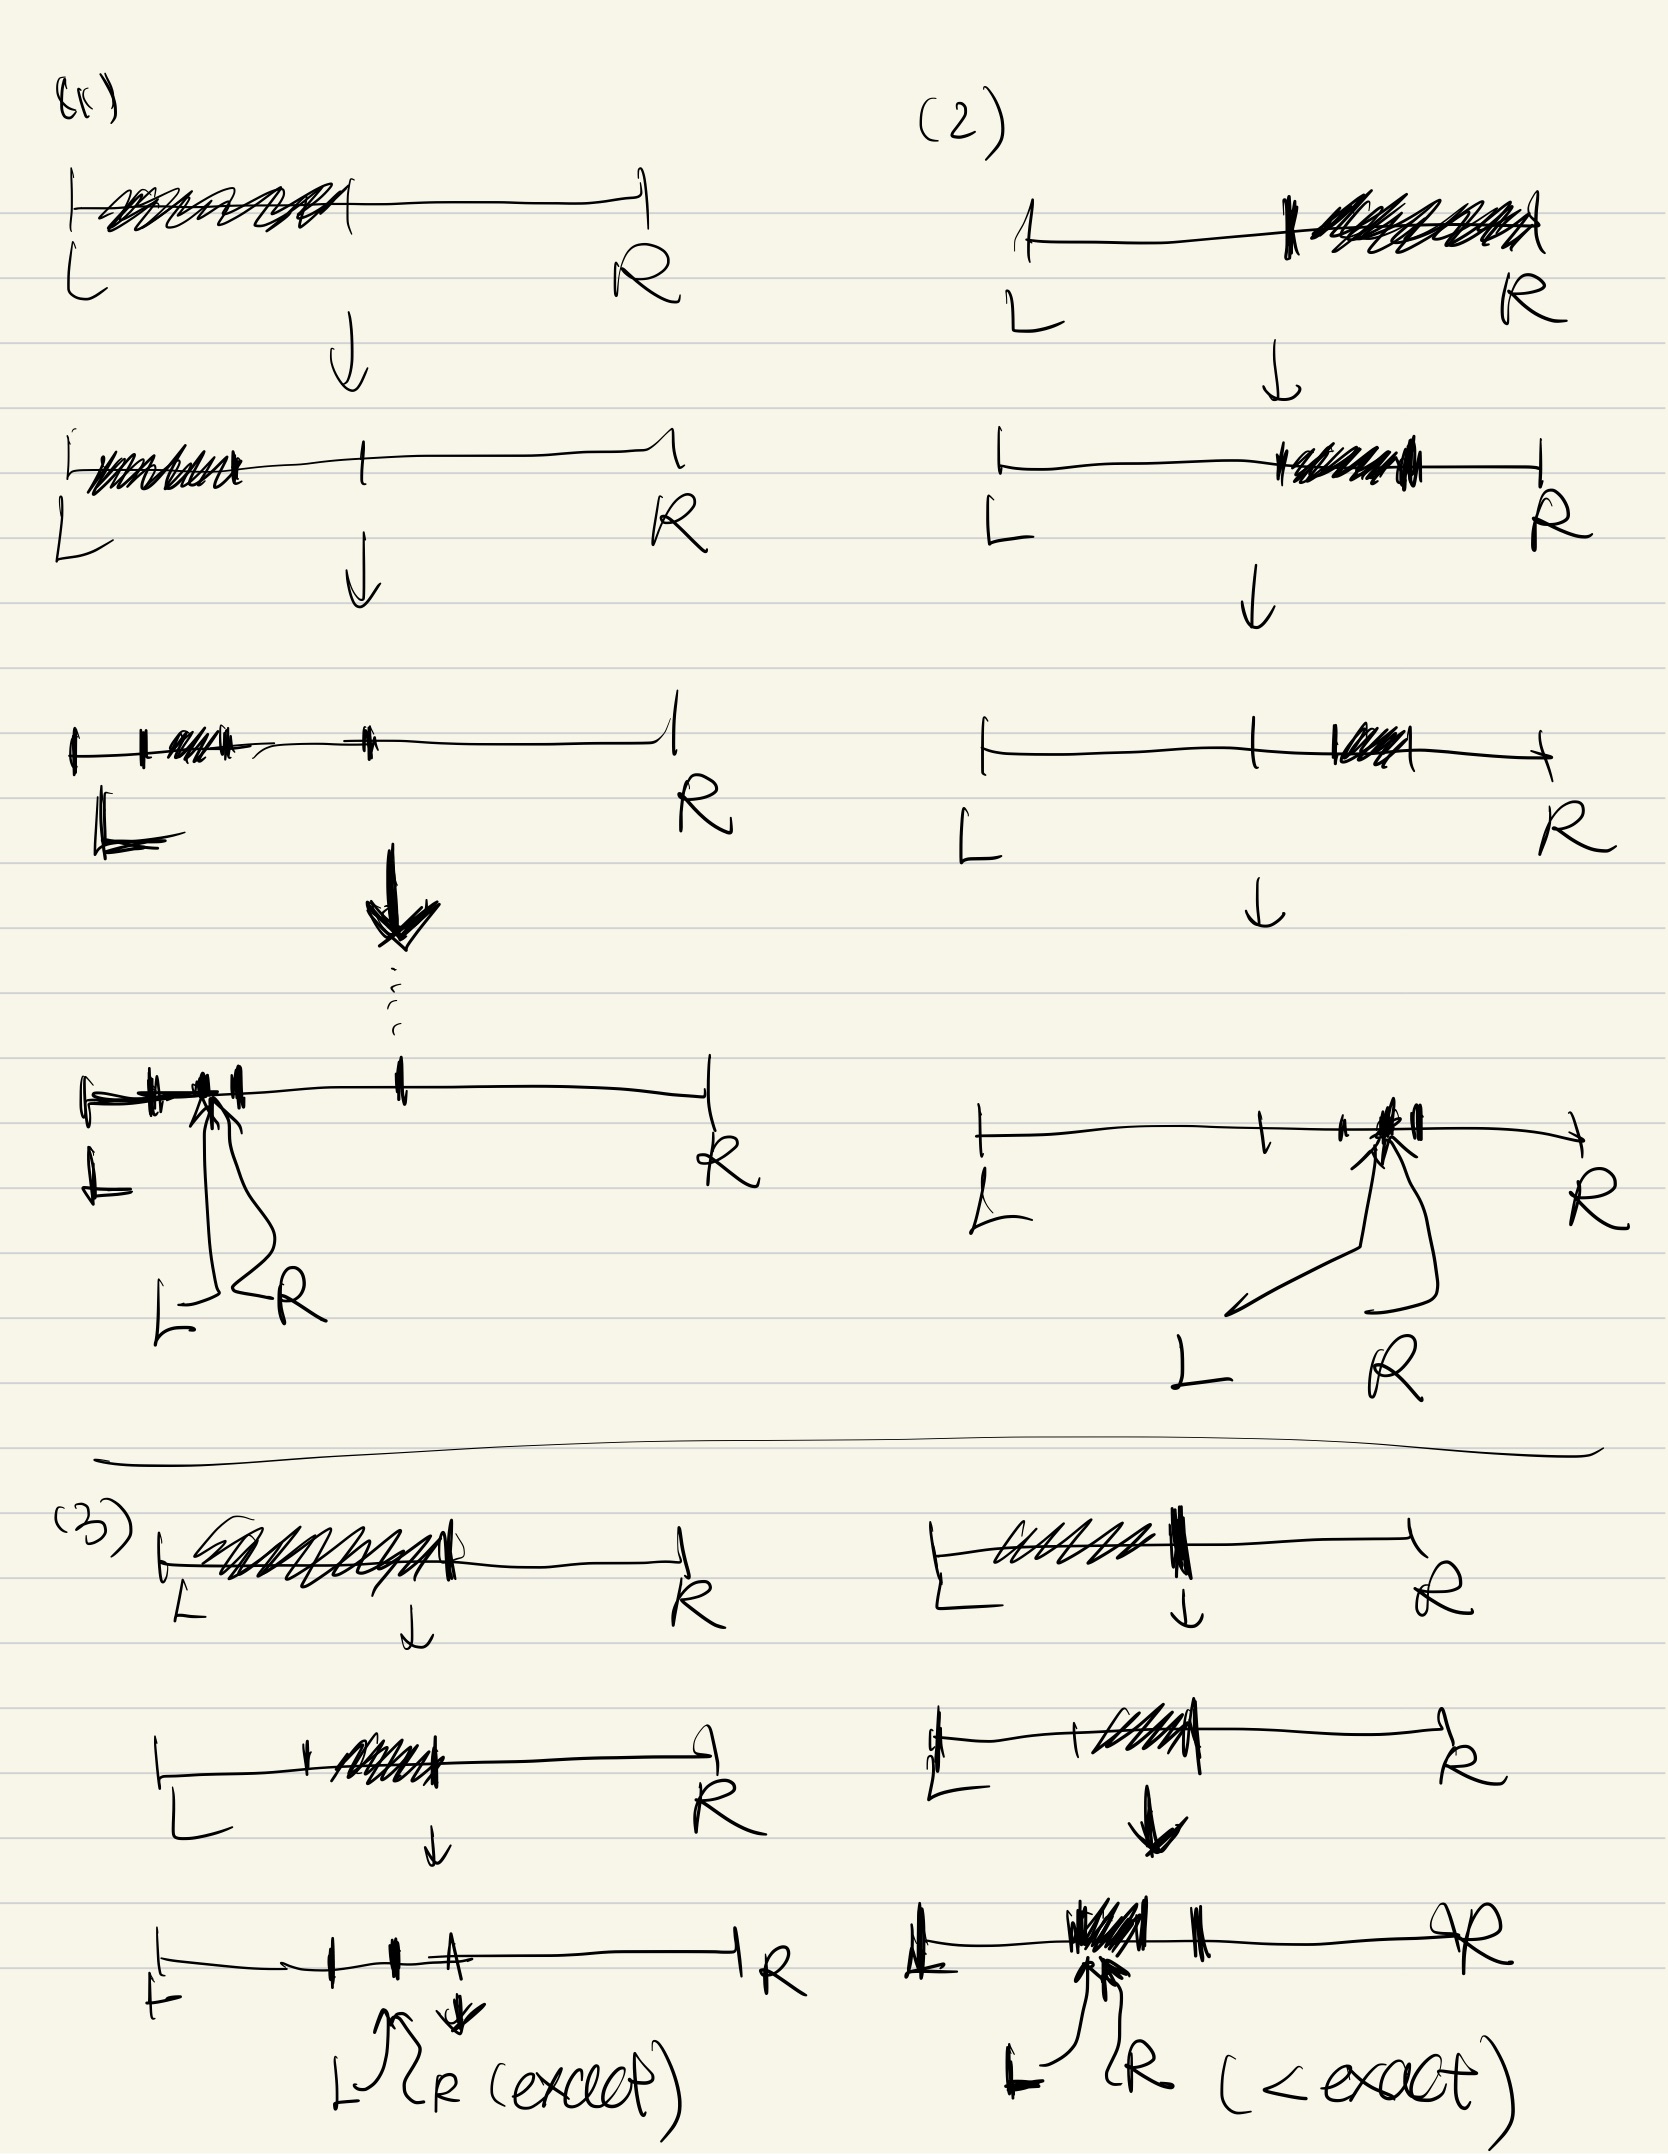 (1)
L R
L R
L R
L R
L R
(2)
L R
L R
L R
L R
L R
(3)
L R
L R
L R
L R (exact)
L R
L R
L R
L R (< exact)